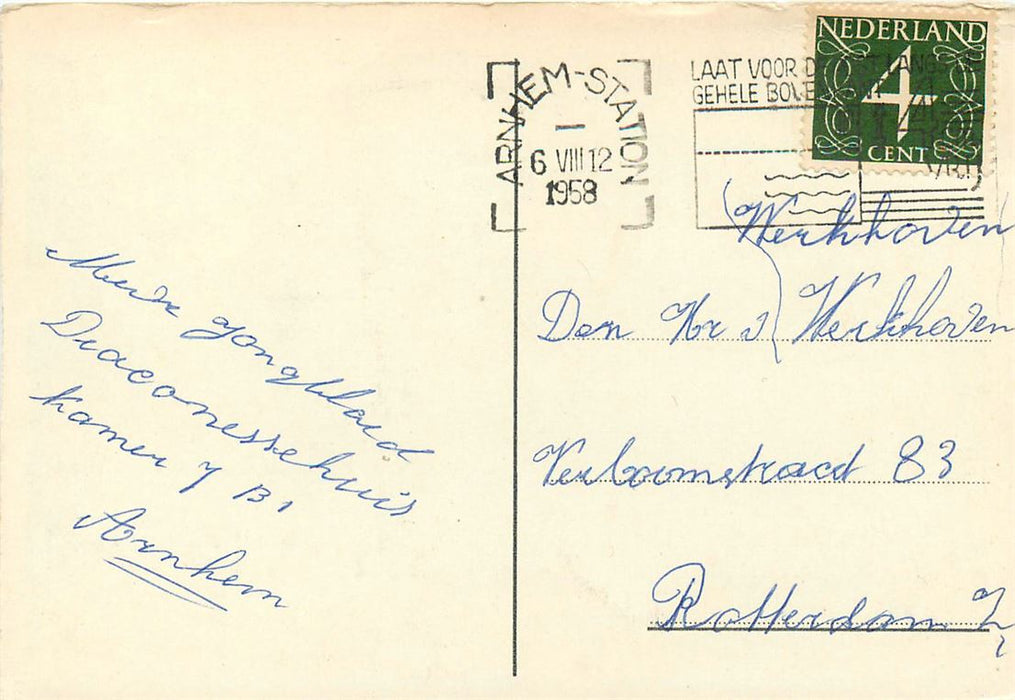 Mevr Jongblaed
Diaconessehuis
kamer 7 B 1
Arnhem
ARNHEM-STATION
6 VIII 12
1958
LAAT VOOR
GEHELE BOVEN
NEDERLAND
4
CENT
Werkhoven
Den Hr J Werkhoven
Verboomstraat 83
Rotterdam Z